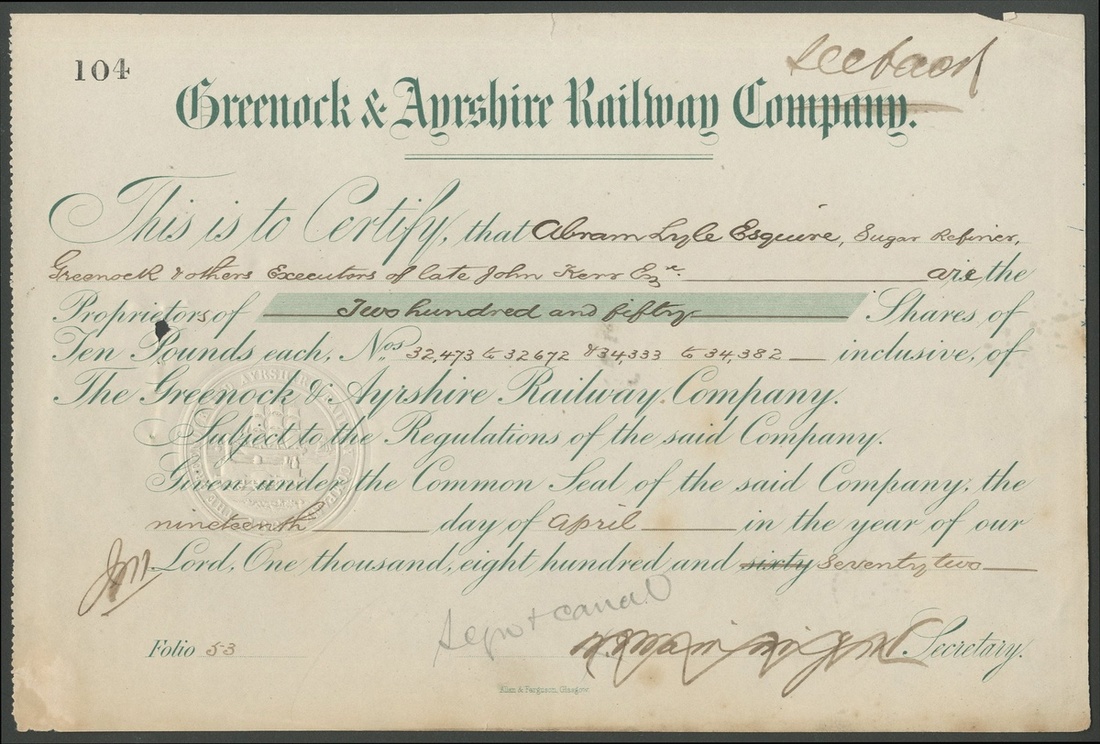 104
Greenock & Ayrshire Railway Company.
This is to Certify, that Abram Lyle Esquire, Sugar Refiner,
Greenock & others Executors of late John Kerr Esqre. are the
Proprietors of Two hundred and fifty Shares of
Ten Pounds each, Nos. 32,473 to 32672 & 34333 to 34,382 inclusive, of
The Greenock & Ayrshire Railway Company.
Subject to the Regulations of the said Company.
Given under the Common Seal of the said Company, the
nineteenth day of April in the year of our
Lord, One thousand, eight hundred and sixty Seventy two
Secretary.
Folio 53
Allan & Ferguson, Glasgow